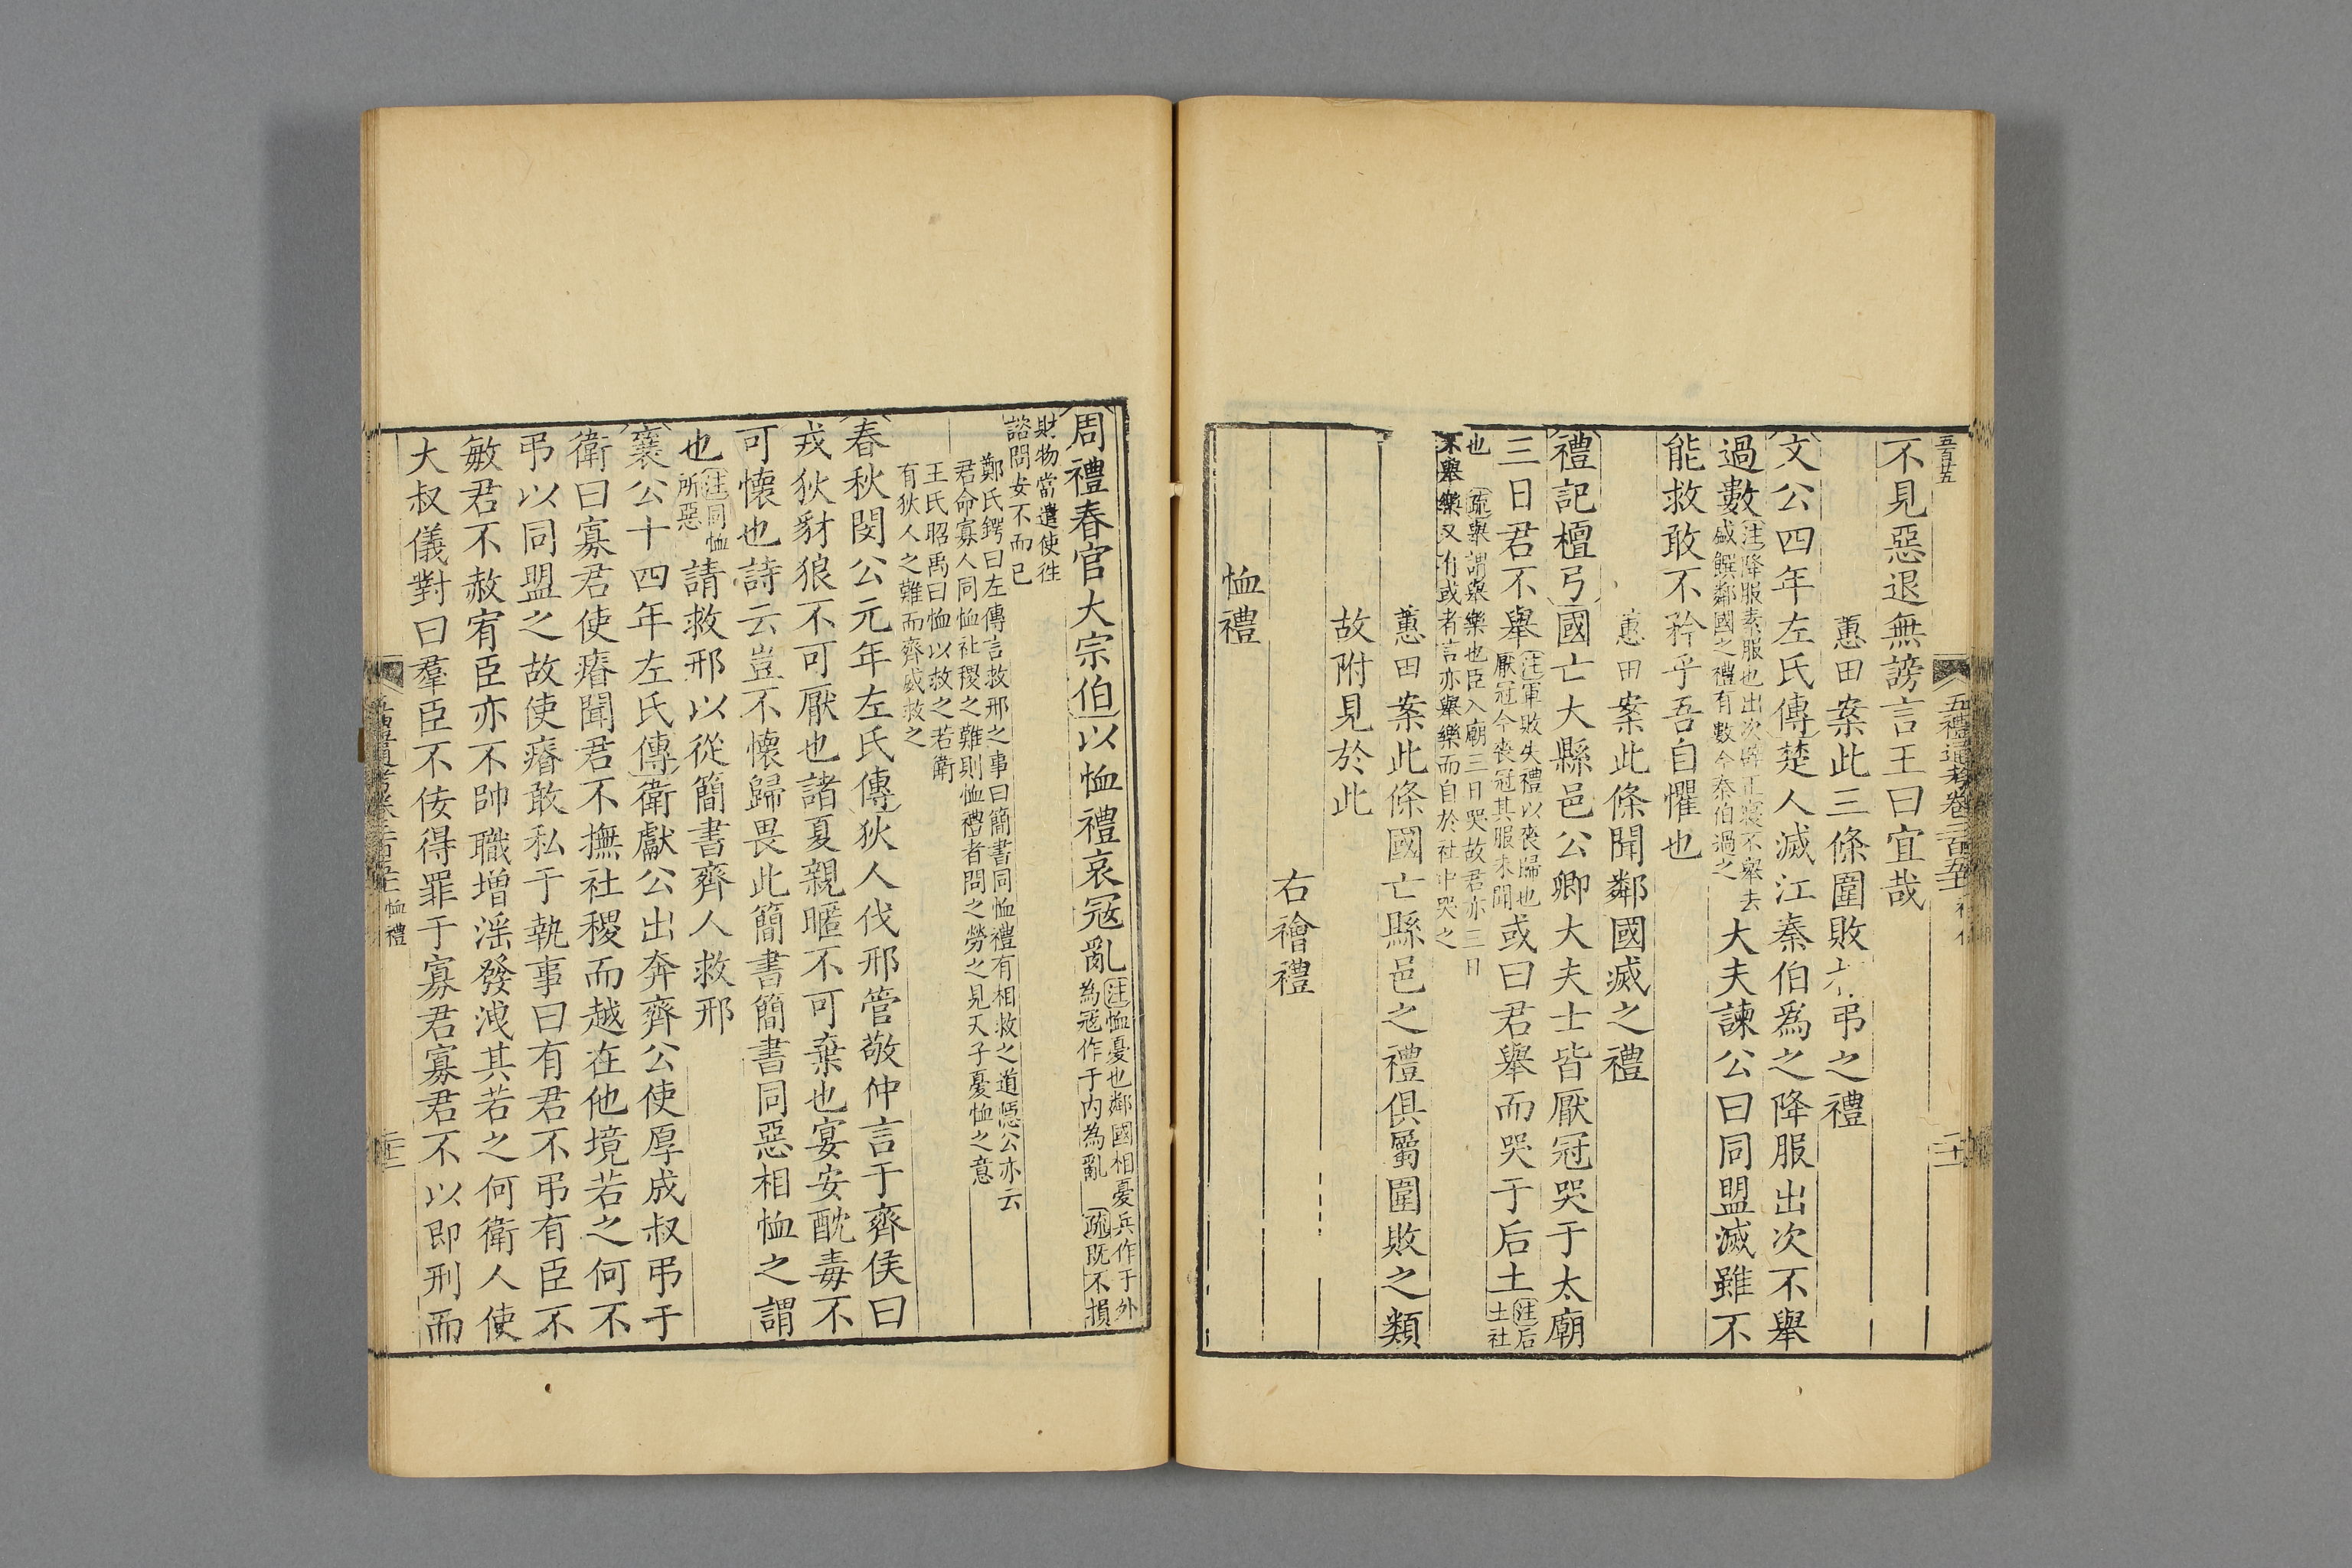 五百廿五
不見惡退無謗言王曰宜哉
蕙田案此三條圍敗弔之禮
文公四年左氏傳楚人滅江秦伯爲之降服出次不舉
過數注降服素服也出次辟正寢不舉去
盛饌鄰國之禮有數今秦伯過之大夫諫公曰同盟滅雖不
能救敢不矜乎吾自懼也
蕙田案此條聞鄰國滅之禮
禮記檀弓國亡大縣邑公卿大夫士皆厭冠哭于太廟
三日君不舉注軍敗失禮以喪歸也
厭冠今喪冠其服未聞或曰君舉而哭于后土注后
土社
也疏舉謂舉樂也臣入廟三日哭故君亦三日
不舉樂又有或者言亦舉樂而自於社中哭之
蕙田案此條國亡縣邑之禮俱屬圍敗之類
故附見於此
右禬禮
恤禮
五禮通考卷
二十一
周禮春官大宗伯以恤禮哀寇亂注恤憂也鄰國相憂兵作于外
為寇作于內為亂 疏既不損
財物當遣使往
諮問安不而已
鄭氏鍔曰左傳言救邢之事曰簡書同恤禮有相救之道隱公亦云
君命寡人同恤社稷之難則恤禮者問之勞之見天子憂恤之意
王氏昭禹曰恤以救之若衛
有狄人之難而齊威救之
春秋閔公元年左氏傳狄人伐邢管敬仲言于齊侯曰
戎狄豺狼不可厭也諸夏親暱不可棄也宴安酖毒不
可懷也詩云豈不懷歸畏此簡書簡書同惡相恤之謂
也注同恤
所惡請救邢以從簡書齊人救邢
襄公十四年左氏傳衛獻公出奔齊公使厚成叔弔于
衛曰寡君使瘠聞君不撫社稷而越在他境若之何不
弔以同盟之故使瘠敢私于執事曰有君不弔有臣不
敏君不赦宥臣亦不帥職增淫發洩其若之何衛人使
大叔儀對曰羣臣不佞得罪于寡君寡君不以即刑而
恤禮